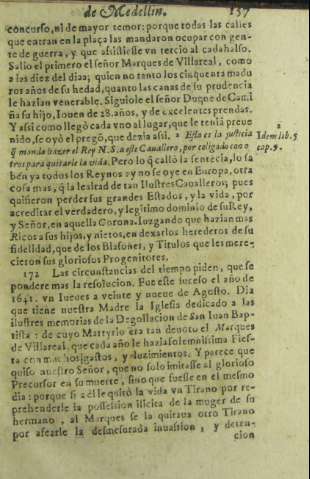 de Medellin. 157
concurso, ni de mayor temor: porque todas las calles
que entran en la plaça las mandaron ocupar con gen-
te de guerra, y que assistiesse vn tercio al cadahalso.
Salio el primero el señor Marques de Villareal, como
a las diez del dia; quien no tento los cinquenta madu
ros años de su hedad, quanto las canas de su prudencia
le hazian venerable. Siguiole el señor Duque de Cami
ña su hijo, Iouen de 28. años, y de excelentes prendas.
Y assi como llegò cada vno al lugar, que le tenia preue
nido, se oyò el pregò, que dezia assi. a Esta es la justicia
q̃ manda hazer el Rey N.S. a este Cauallero, por coligado con o
tros para quitarle la vida. Pero lo q̃ callò la sentẽcia, lo sa
ben ya todos los Reynos: y no se oye en Europa, otra
cosa mas, q̃ la lealtad de tan Ilustres Caualleros; pues
quisieron perder sus grandes Estados, y la vida, por
acreditar el verdadero, y legitimo dominio de su Rey,
y Señor, en aquella Corona. Iuzgando que hazian mas
Ricos a sus hijos, y nietos, en dexarlos herederos de su
fidelidad, que de los Blasones, y Titulos que les mere-
cieron sus gloriosos Progenitores.
a
Idem lib. 5
cap. 9.
172 Las circunstancias del tiempo piden, que se
pondere mas la resolucion. Fue este suceso el año de
1641. vn Iueues a veinte y nueue de Agosto. Dia
que tiene nuestra Madre la Iglesia dedicado a las
ilustres memorias de la Degollacion de San Iuan Bap-
tista: de cuyo Martyrio era tan deuoto el Marques
de Villareal, que cada año le hazia solemnissima Fies-
ta con muchos gastos, y luzimientos. Y parece que
quiso nuestro Señor, que no solo imitasse al glorioso
Precursor en su muerte, sino que fuesse en el mesmo
dia: porque si a él le quitò la vida vn Tirano por re-
prehenderle la possession ilicita de la muger de su
hermano, al Marques se la quitaua otro Tirano
por afearle la desmesurada inuasion, y deten-
cion